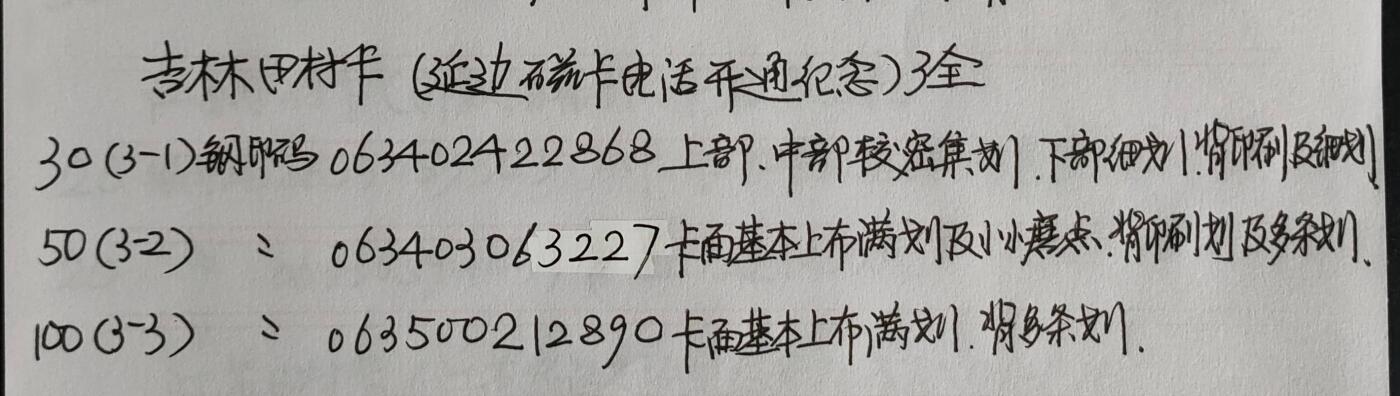 吉林田村卡(延边磁卡电话开通纪念)3全
30(3-1)钢印码063402422868上部、中部较密集划、下部细划、背印刷及细划
50(3-2) 〃 063403063227卡面基本上布满划及小小麻点、背印刷划及多条划、
100(3-3) 〃 063500212890卡面基本上布满划、背多条划.